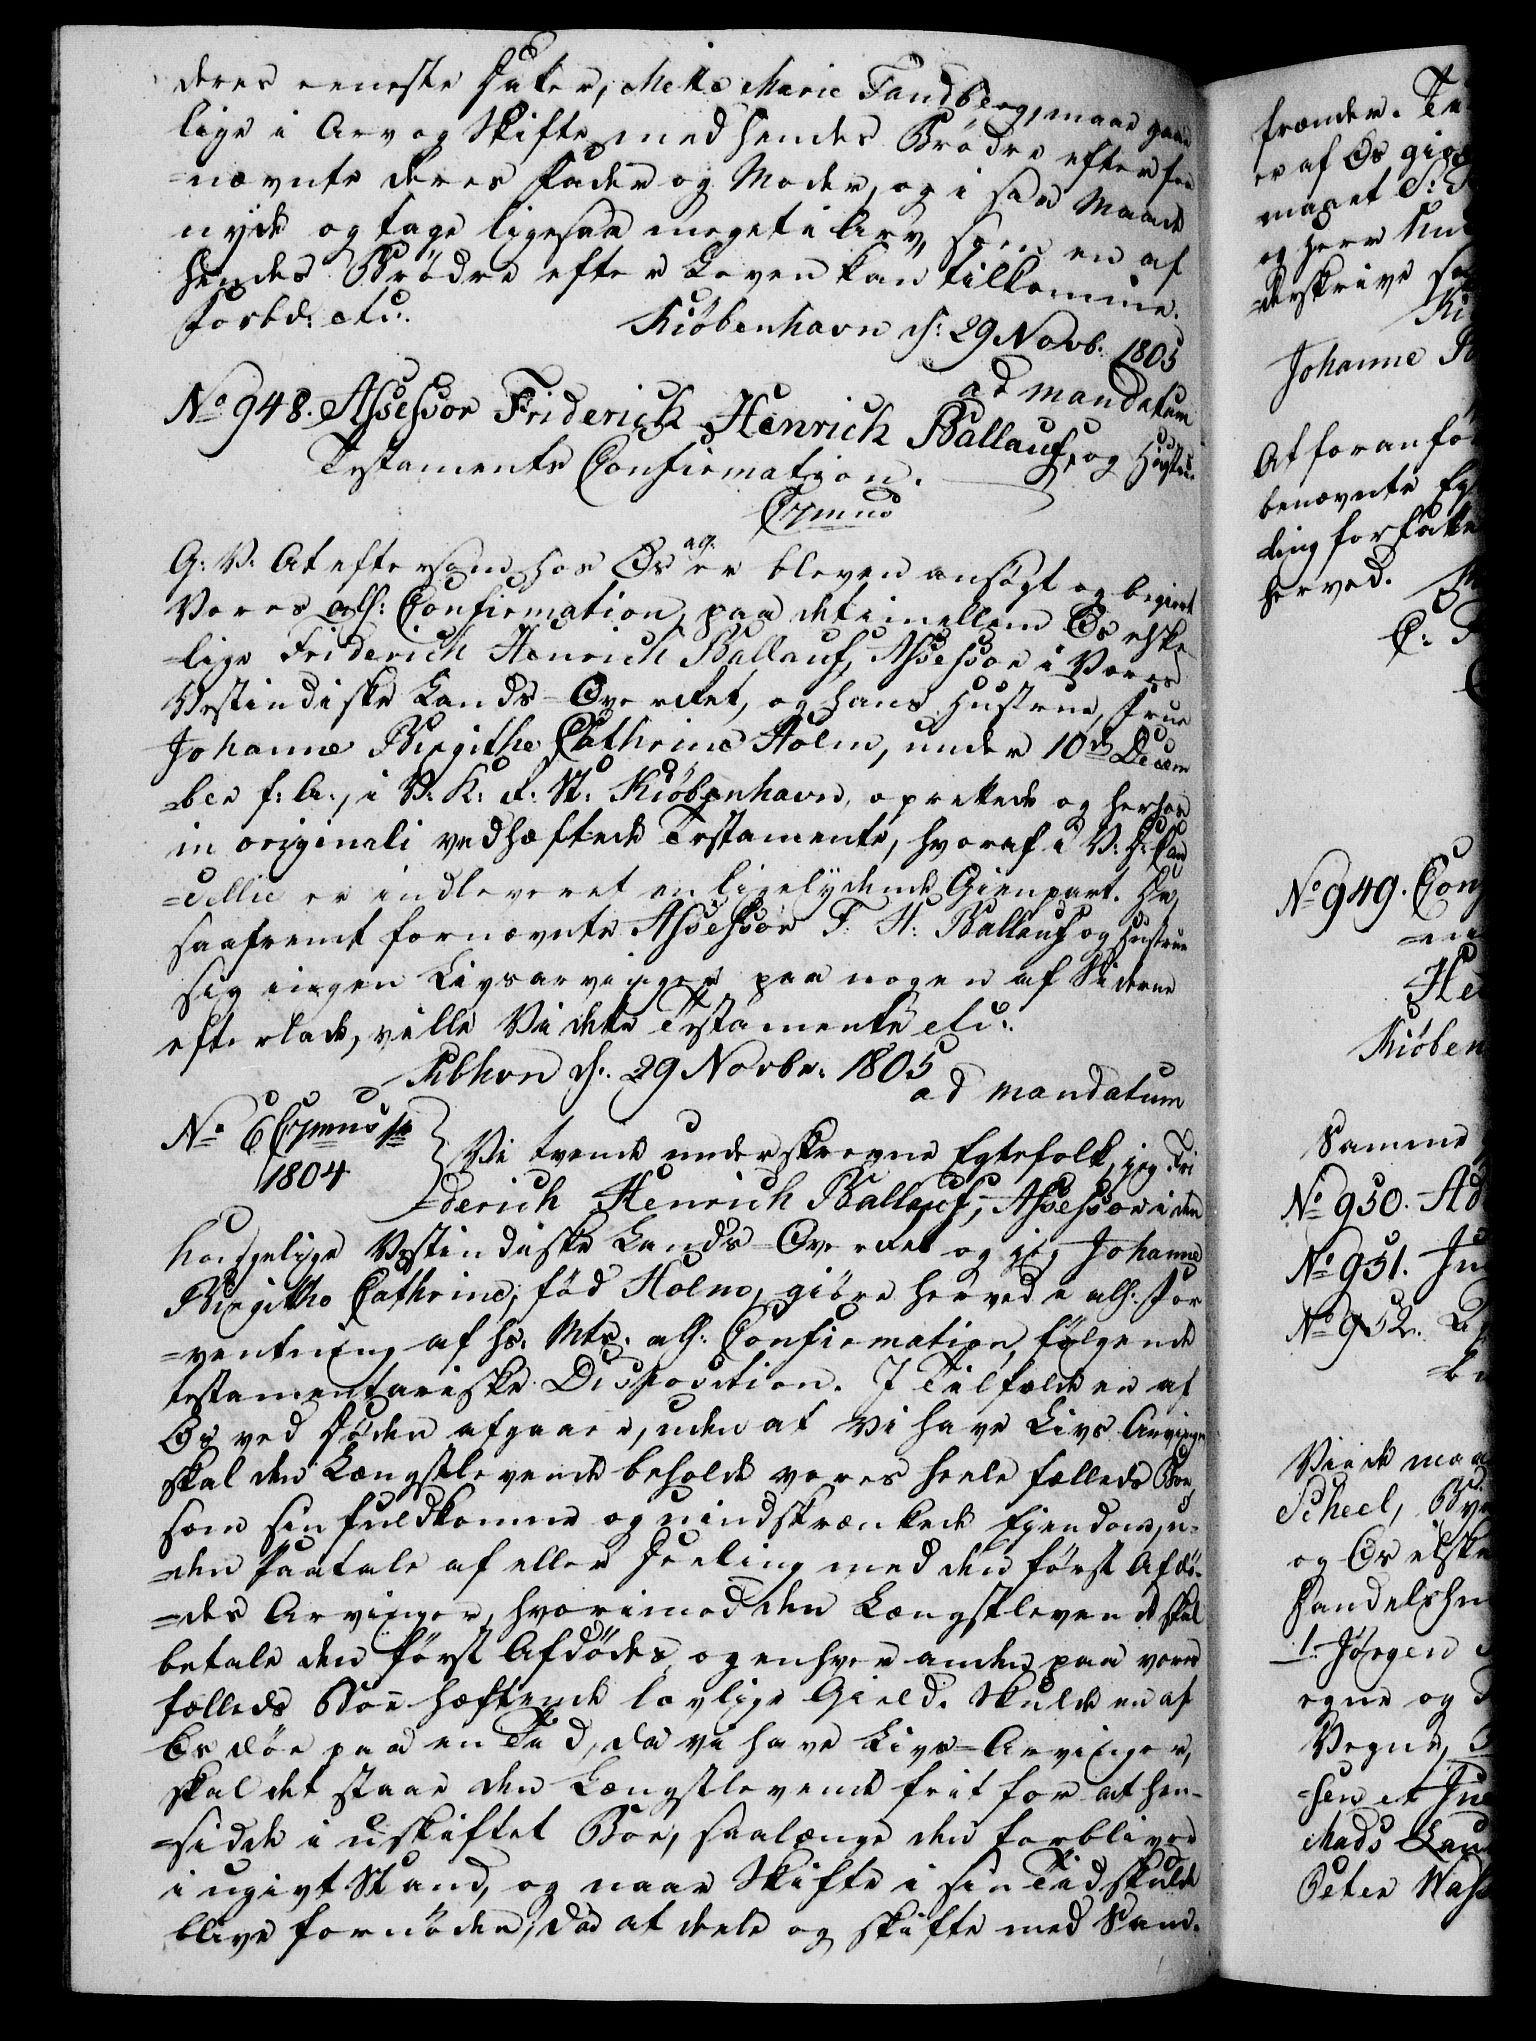 deres eeneste Datter, Mette Marie Fandberg, maae gaae
lige i Arv og Skifte med hendes Brødre efter for
=nævnte deres Fader og Moder, og i saa Maade
nyde og tage ligesaa meget i Arv, som en af
hendes Brødre efter Loven kan tilkomme.
Forbd: etc.
Kiöbenhavn d: 29 Novb. 1805
ad mandatum
No 948. Assessor Friderich Henrich Ballauf, og Hustrues
Testamente Confirmation.
Cammer
G: V. At eftersom hos Os er bleven ansøgt og begiert
Vores allh: Confirmation, paa det imellem Os elske
=lige Friderich Henrich Ballauf, Assessor i Vores
Vestindiske Lands-Overret, og hans Hustrue, Frue
Johanne Birgithe Cathrine Holm, under 10de Decem
=ber f: A:, i V: K: R: St: Kiöbenhavn, oprettede og herhos
in originali vedhæftede Testamente, hvoraf i V: D: Can
=cellie er indleveret en ligelydende Gienpart. Da,
saafremt fornævnte Assessor F: H: Ballauf og Hustrue
sig ingen Livsarvinger paa nogen af Siderne
efterlade, ville Vi dette Testamente etc:
Kbhvn d: 29 Novbr: 1805
ad mandatum
No 6
1804
Vi tvende underskrevne Egtefolk, jeg Fri
=derich Henrich Ballauf, Assessor i den
kongelige Vestindiske Lands-Overret og jeg Johanne
Birgitha Cathrine, fød Holm, giöre herved i allh: For
=ventning af Hs: Mts: allh: Confirmation følgende
testamentariske Disposition. I Tilfælde en af
Os ved Døden afgaaer, uden at vi have Livs Arvinger
skal den Længstlevende beholde vores heele fælleds Boe,
som sin fuldkomne og uindskrænkede Eiendom, u-
=den Paatale af eller Deeling med den først Afdø-
=des Arvinger, hvorimod den Længstlevende skal
betale den først Afdødes, og enhver anden paa vores
fælleds Boe hæftende lovlige Gield. Skulde en af
Os døe paa en Tid, da vi have Livs-Arvinger,
skal det staae den Længstlevende frit for at hen-
=sidde i uskiftet Boe, saalænge den forbliver
i ugivt Stand, og naar Skifte i sin Tid skulde
blive fornøden, da at deele og skifte med Sam-
frænder. Te
er af Os gio
maget S:
og herr Kne
=derskrive
Ki
Johanne
At foranfør
benævnte Eg
ding forfatte
herved.
No 949. Con
He
Kiöben
Samme
No 950. Ad
No 951. Ju
No 952.
Viede maa
Scheel,
og Os elske
Handelshu
1. Jørgen
egne og
Vegne, 3
=sen et Jue
Mads Lau
Peter Wass